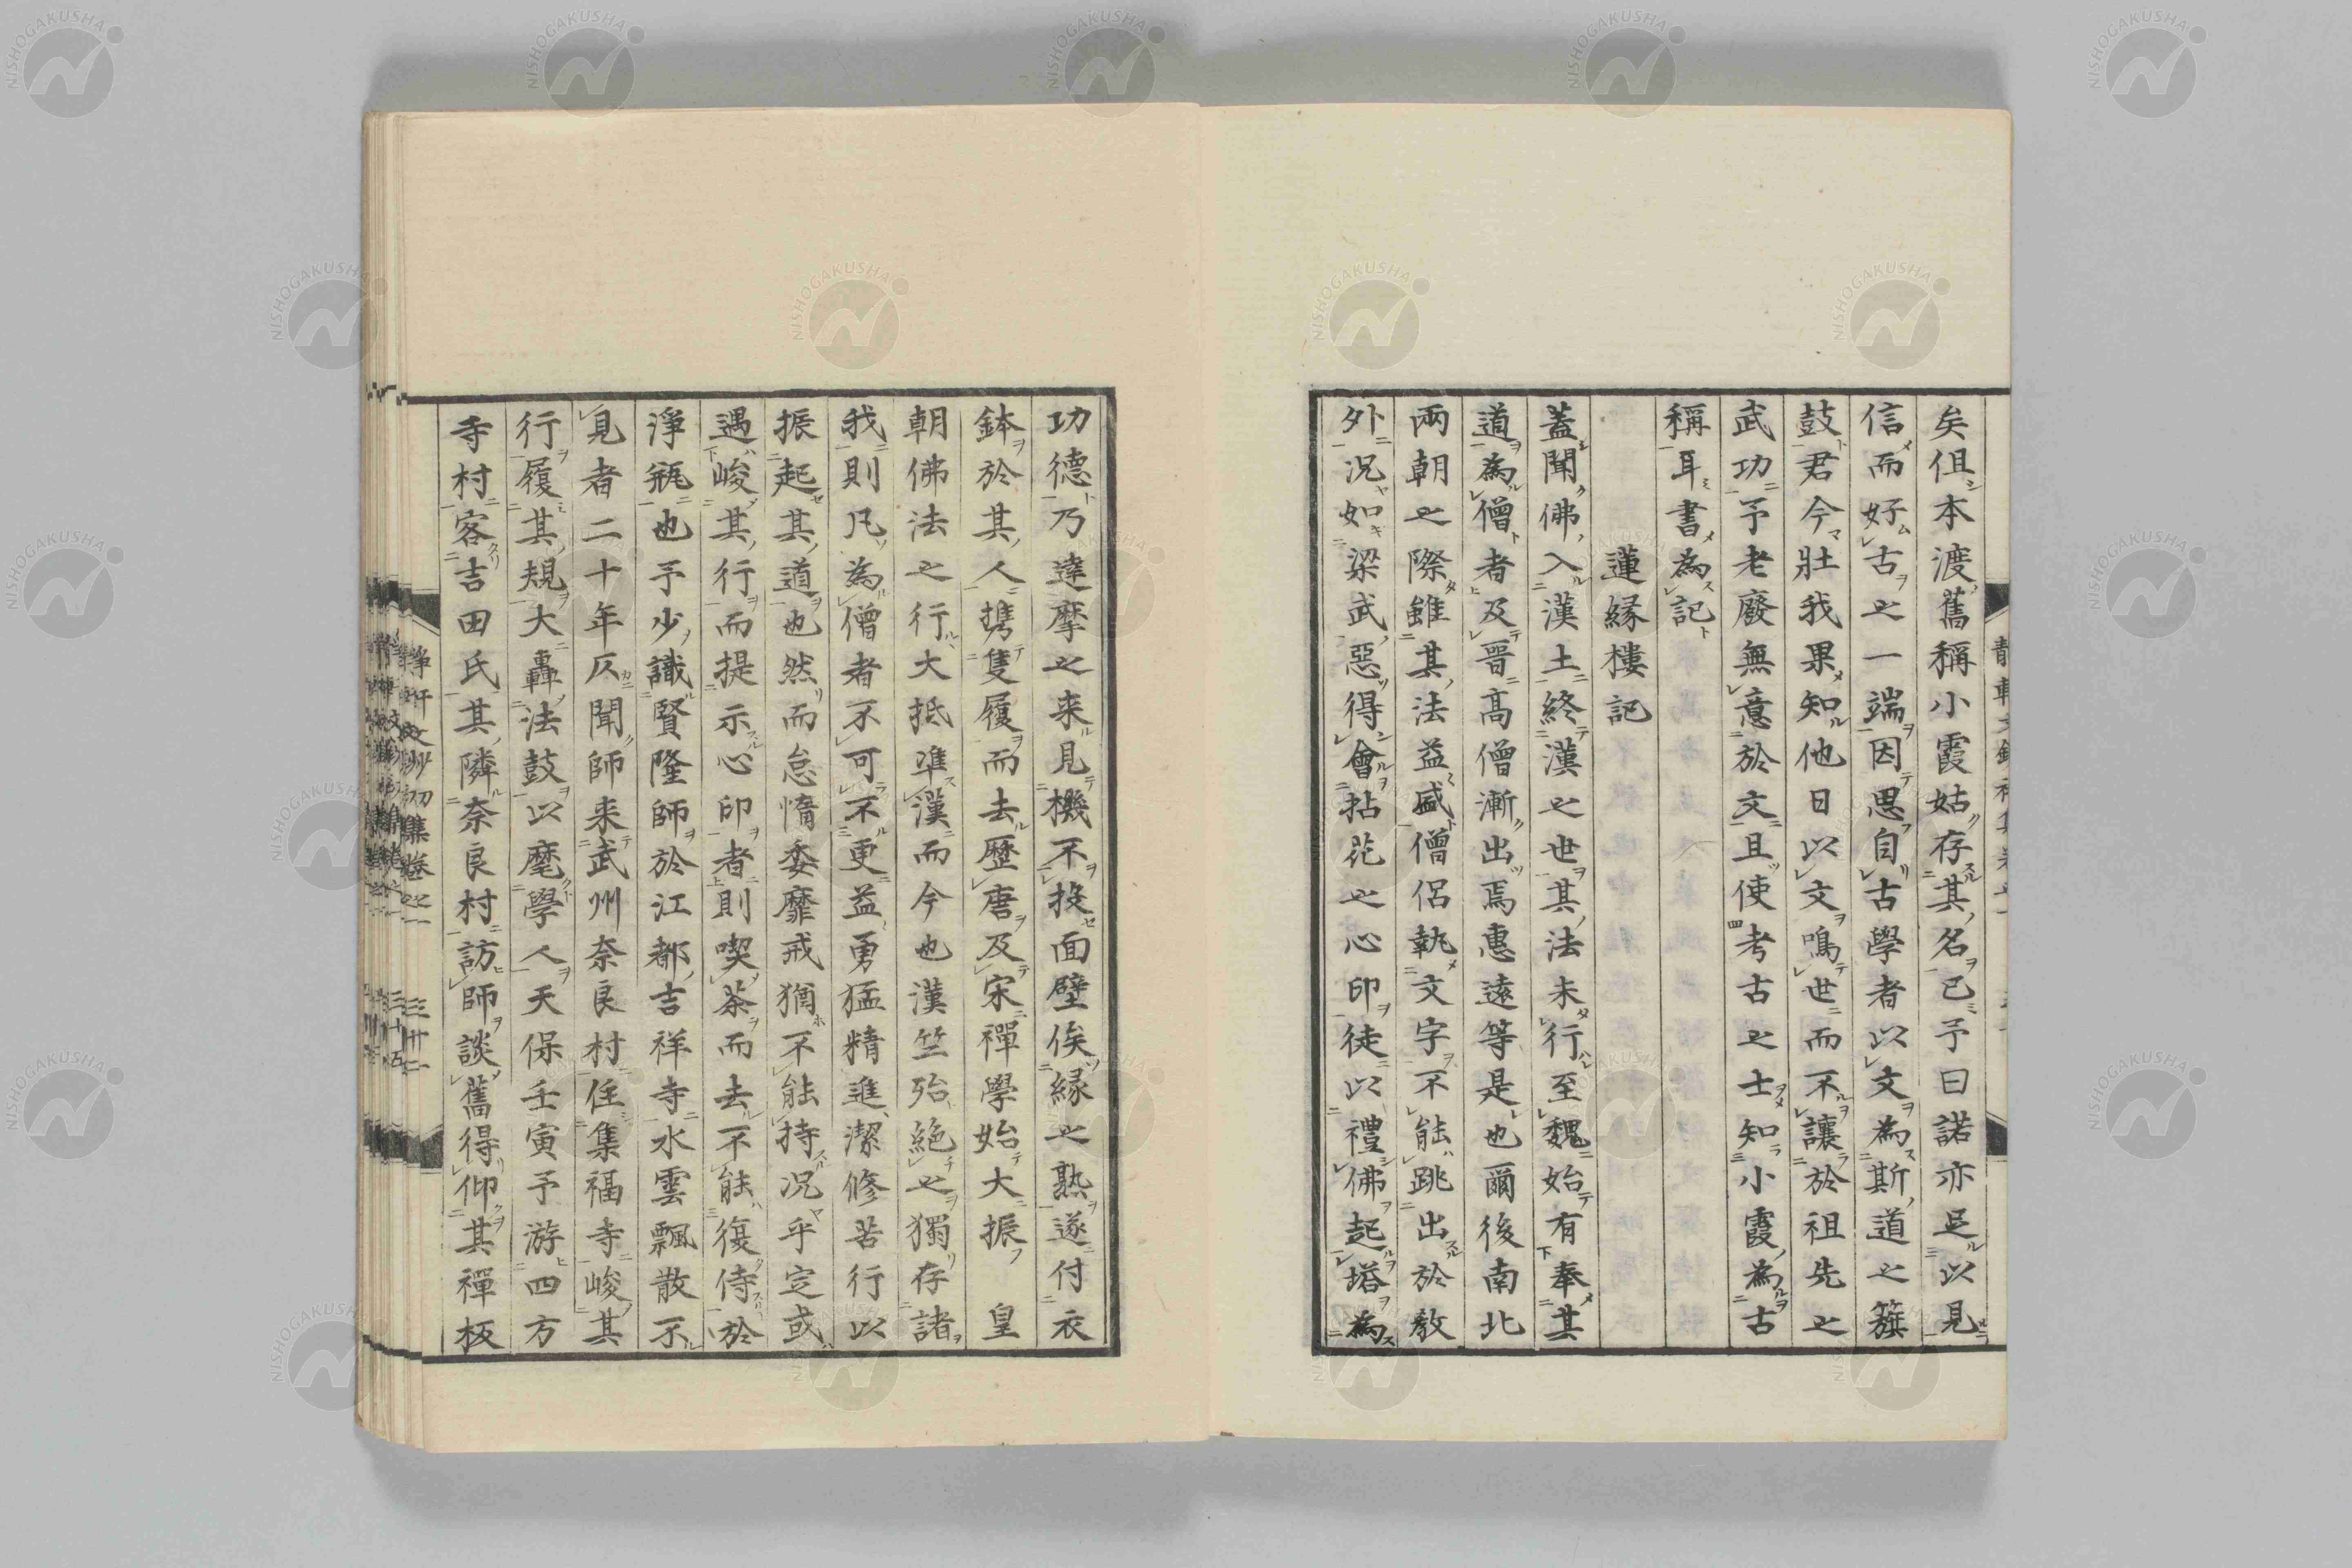 矣但本渡舊稱小霞姑存其名已予曰諾亦足以見
信而好古之一端因思自古學者以文為斯道之籏
鼓君今壯我果知他日以文鳴世而不讓於祖先之
武功予老廢無意於文且使考古之士知小霞為古
稱耳書為記
蓮縁樓記
蓋聞佛入漢土終漢之世其法未行至魏始有奉其
道為僧者及晉高僧漸出焉惠遠等是也爾後南北
兩朝之際雖其法益盛僧侶執文字不能跳出於教
外況如梁武惡得會拈花之心印徒以禮佛起塔為
功德乃達摩之来見機不投面壁俟縁之熟遂付衣
鉢於其人携隻履而去歷唐及宋禪學始大振 皇
朝佛法之行大抵準漢而今也漢竺殆絶之獨存諸
我則凡為僧者不可不更益勇猛精進潔修苦行以
振起其道也然而怠惰委靡戒猶不能持況乎定或
遇峻其行而提示心印者則喫茶而去不能復侍於
淨瓶也予少識賢隆師於江都吉祥寺水雲飄散不
見者二十年仄聞師来武州奈良村住集福寺峻其
行履其規大轟法鼓以麾學人天保壬寅予游四方
寺村客吉田氏其隣奈良村訪師談舊得仰其禪板
NISHOGAKUSHA